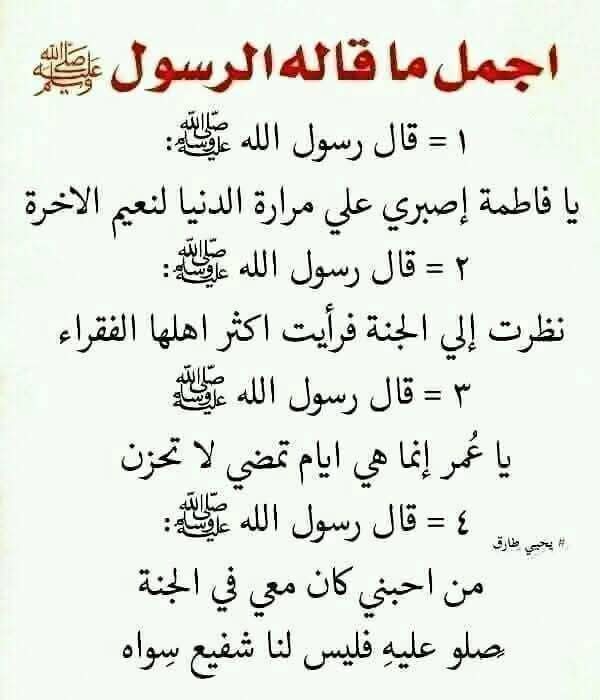 اجمل ما قاله الرسول ﷺ
١ = قال رسول الله ﷺ:
يا فاطمة إصبري علي مرارة الدنيا لنعيم الاخرة
٢ = قال رسول الله ﷺ:
نظرت إلي الجنة فرأيت اكثر اهلها الفقراء
٣ = قال رسول الله ﷺ
يا عُمر إنما هي ايام تمضي لا تحزن
٤ = قال رسول الله ﷺ:
# يحيي طارق
من احبني كان معي في الجنة
صلو عليهِ فليس لنا شفيع سِواه